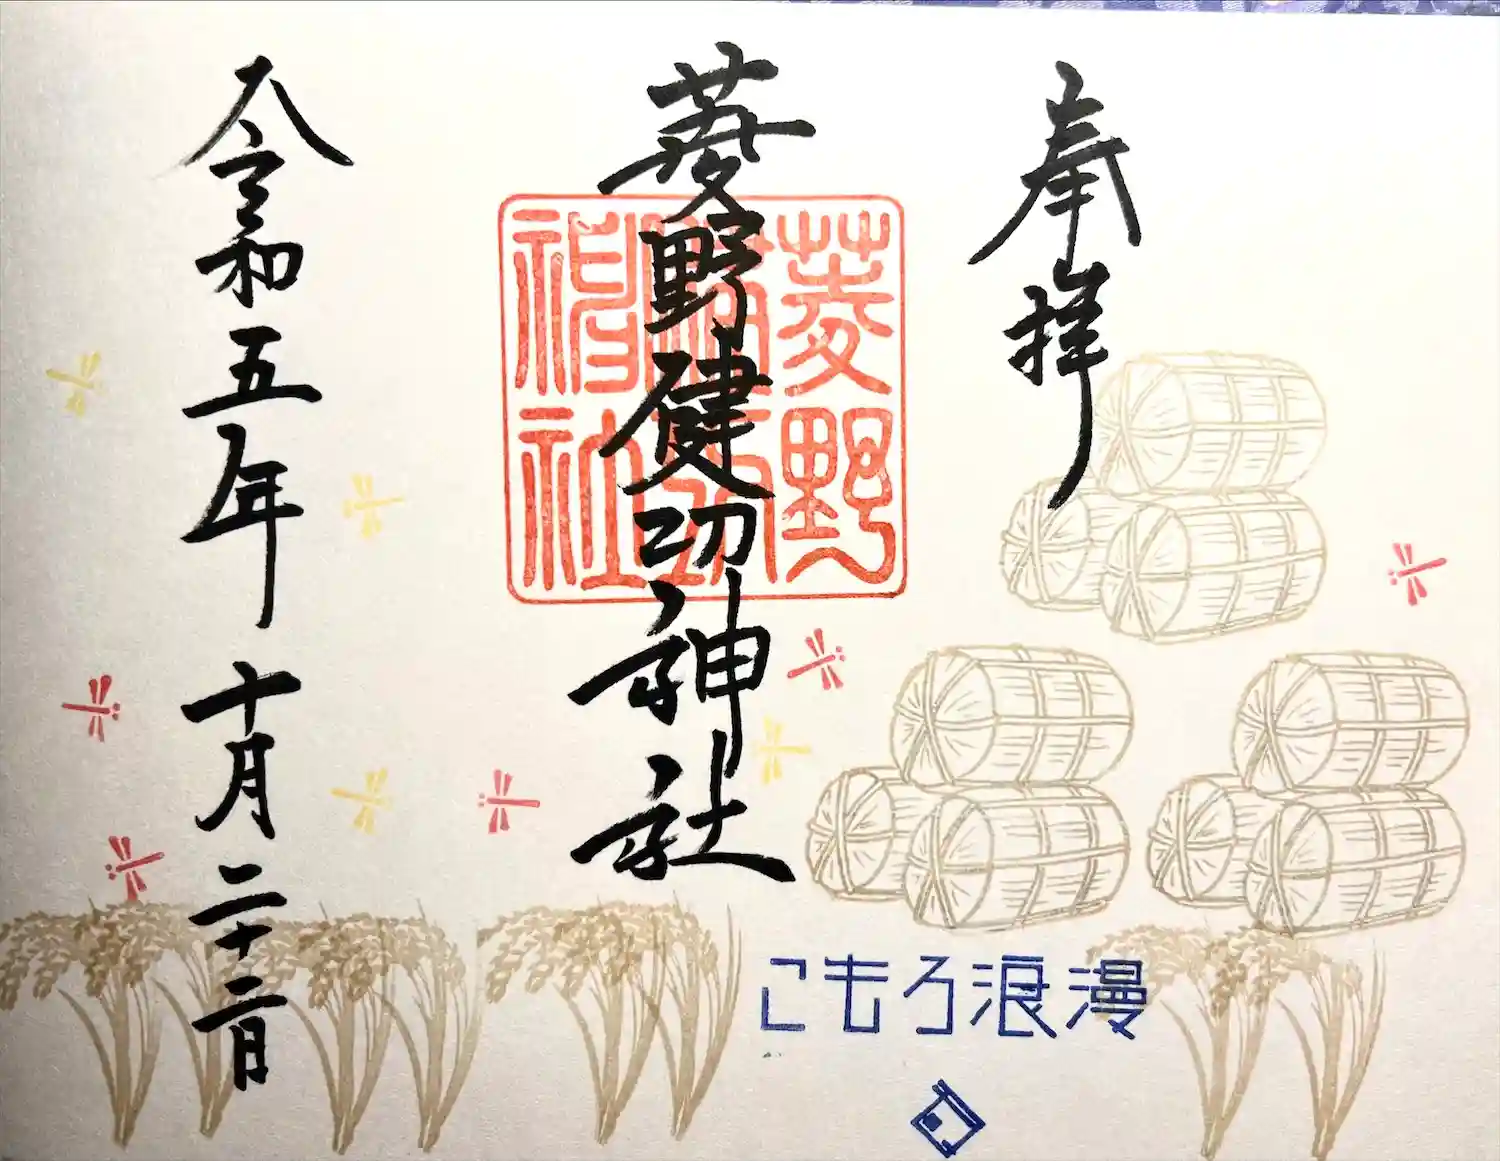 奉拝
菱野健功神社
菱野
健功
神社
令和五年十月二十二日
こもろ浪漫